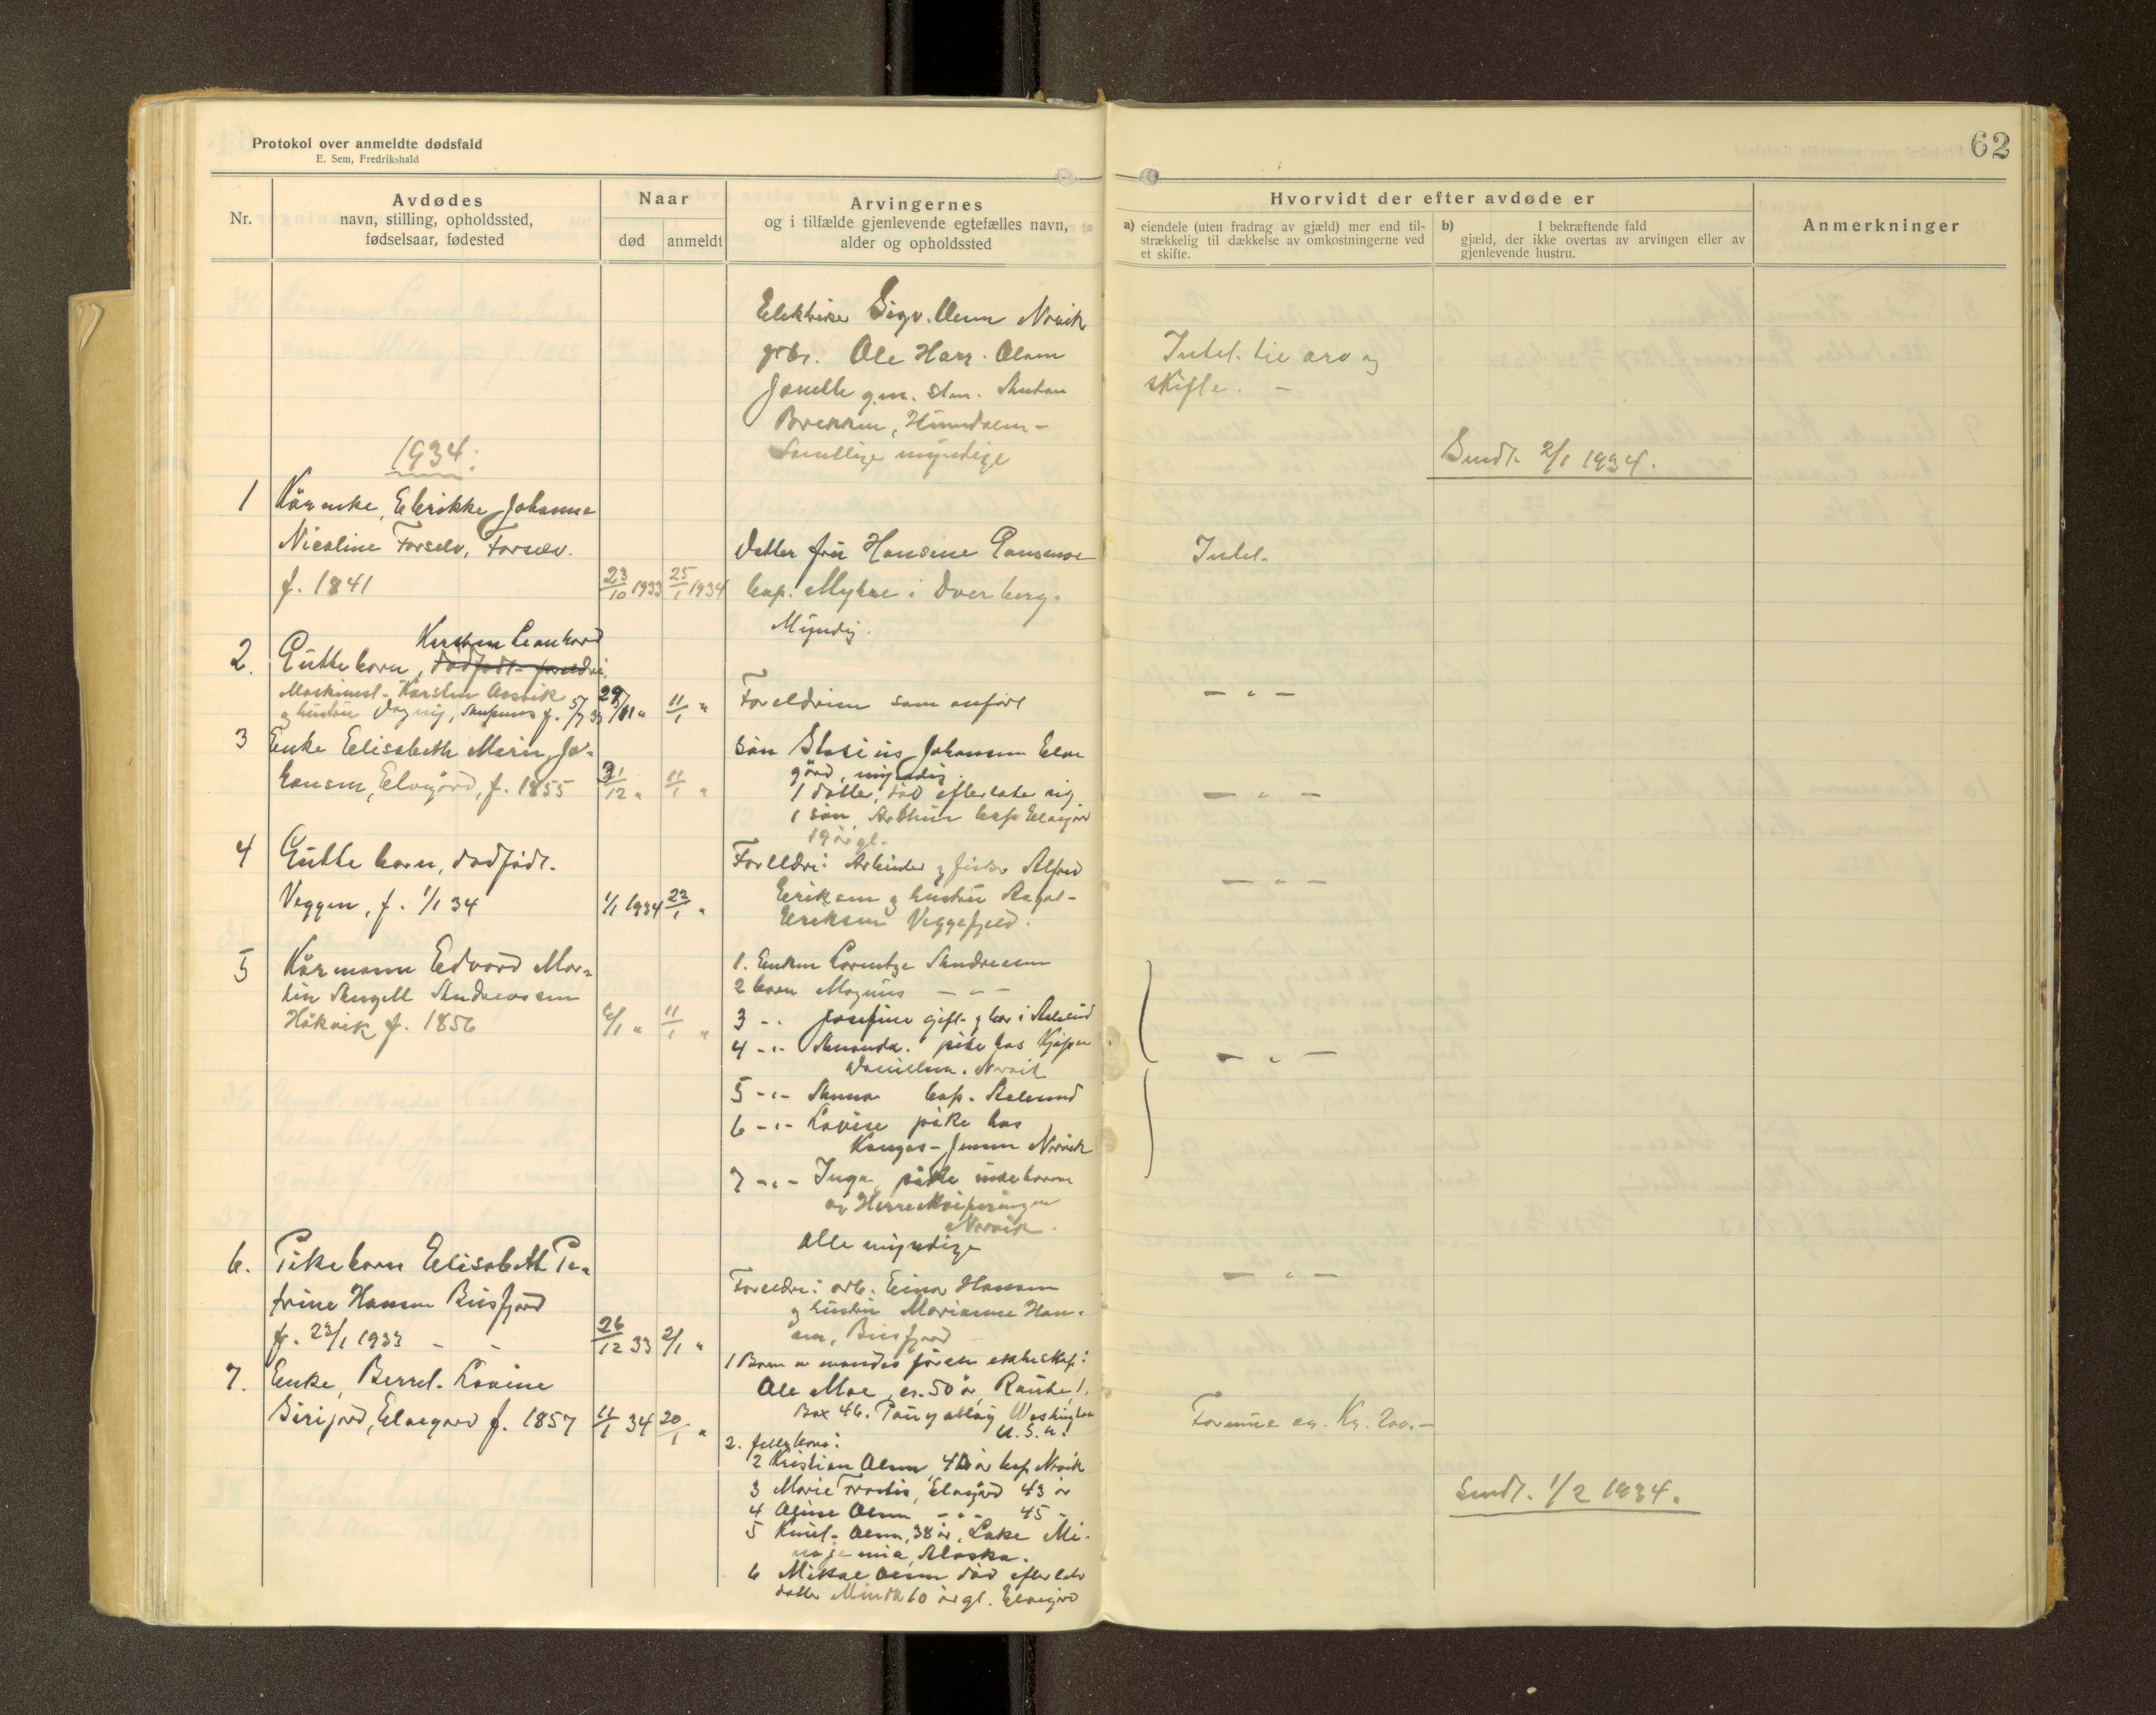 Protokol over anmeldte dødsfald
E. Sem, Fredrikshald
62
Nr.
Avdødes
navn, stilling, opholdssted,
fødselsaar, fødested
Naar
død
anmeldt
Arvingernes
og i tilfælde gjenlevende egtefælles navn,
alder og opholdssted
Hvorvidt der efter avdøde er
a) eiendele (uten fradrag av gjæld) mer end til-
strækkelig til dækkelse av omkostningerne ved
et skifte.
b) I bekræftende fald
gjæld, der ikke overtas av arvingen eller av
gjenlevende hustru.
Anmerkninger
Sigv. Olsen Narvik
Ole Harr. Olsen
g.m.
Samtlige myndige
Intet til arv og
skifte. -
Sendt 2/1 1934.
1934:
1 Kårenke, Elerikke Johanne
Nicoline Forselv, Forselv.
f. 1841
23/10 1933 25/1 1934
Datter fru Hansine
bop. i Dverberg.
Myndig.
Intet.
2. Guttebarn, Karsten Leonhard
dødfødt foreldre
Maskinist Karsten
og hustru Dagny, f. 5/7 33
29/11 " 11/1 "
Foreldrene som anført
- " -
3 Enke Elisabeth Marie Jo-
hansen, Elvegård, f. 1855
31/12 " 11/1 "
søn Johansen Elve
gård, myndig.
1 datter, død efterlater sig
1 søn, Arthur bop Elvegård
19 årgl.
- " -
4 Gutte barn, dødfødt.
Veggen, f. 1/1 34
1/1 1934 22/1 "
Foreldre: Arbeider og fisker Alfred
Eriksen og hustru
Eriksen Veggefjeld.
- " -
5 Kårmann Edvard Mar-
tin Angell Andreassen
Håkvik f. 1856
6/1 " 11/1 "
1. Enken Lorentze Andreassen
2 barn Magnus - " -
3 - " - Josefine gift og bor i Aalesund
4 - " - Amanda. pike hos
Danielsen. Narvik
5 - " - Anna bop. Aalesund
6 - " - Lovise pike hos
Jensen Narvik
7 - " - Inga,
av Herreekviperingen
Narvik.
Alle myndige
- " -
6. Pikebarn Elisabeth Pe-
trine Hansen Beisfjord
f. 23/1 1933 - -
26/12 33 2/1 "
Foreldre: arb. Einar Hansen
og hustru Marianne Han-
sen, Beisfjord
- " -
7. Enke, Lovine
Elvegard f. 1857
11/1 34 20/1 "
1 Barn av mandes første ekteskap:
Ole Moe, ca. 50 år, Route 1,
Box 46. Washington
U.S.A.
2. fellesbarn:
2 Kristian Olsen, år bop Narvik
3 Marie Elvegård 43 år
4 Olsen - " - 45 -
5 Knut Olsen, 38 år, Lake Mi-
Alaska.
6 Mikal Olsen død efterlater
datter 10 årgl. Elvegård
Formue ca. Kr. 200.-
Sendt. 1/2 1934.